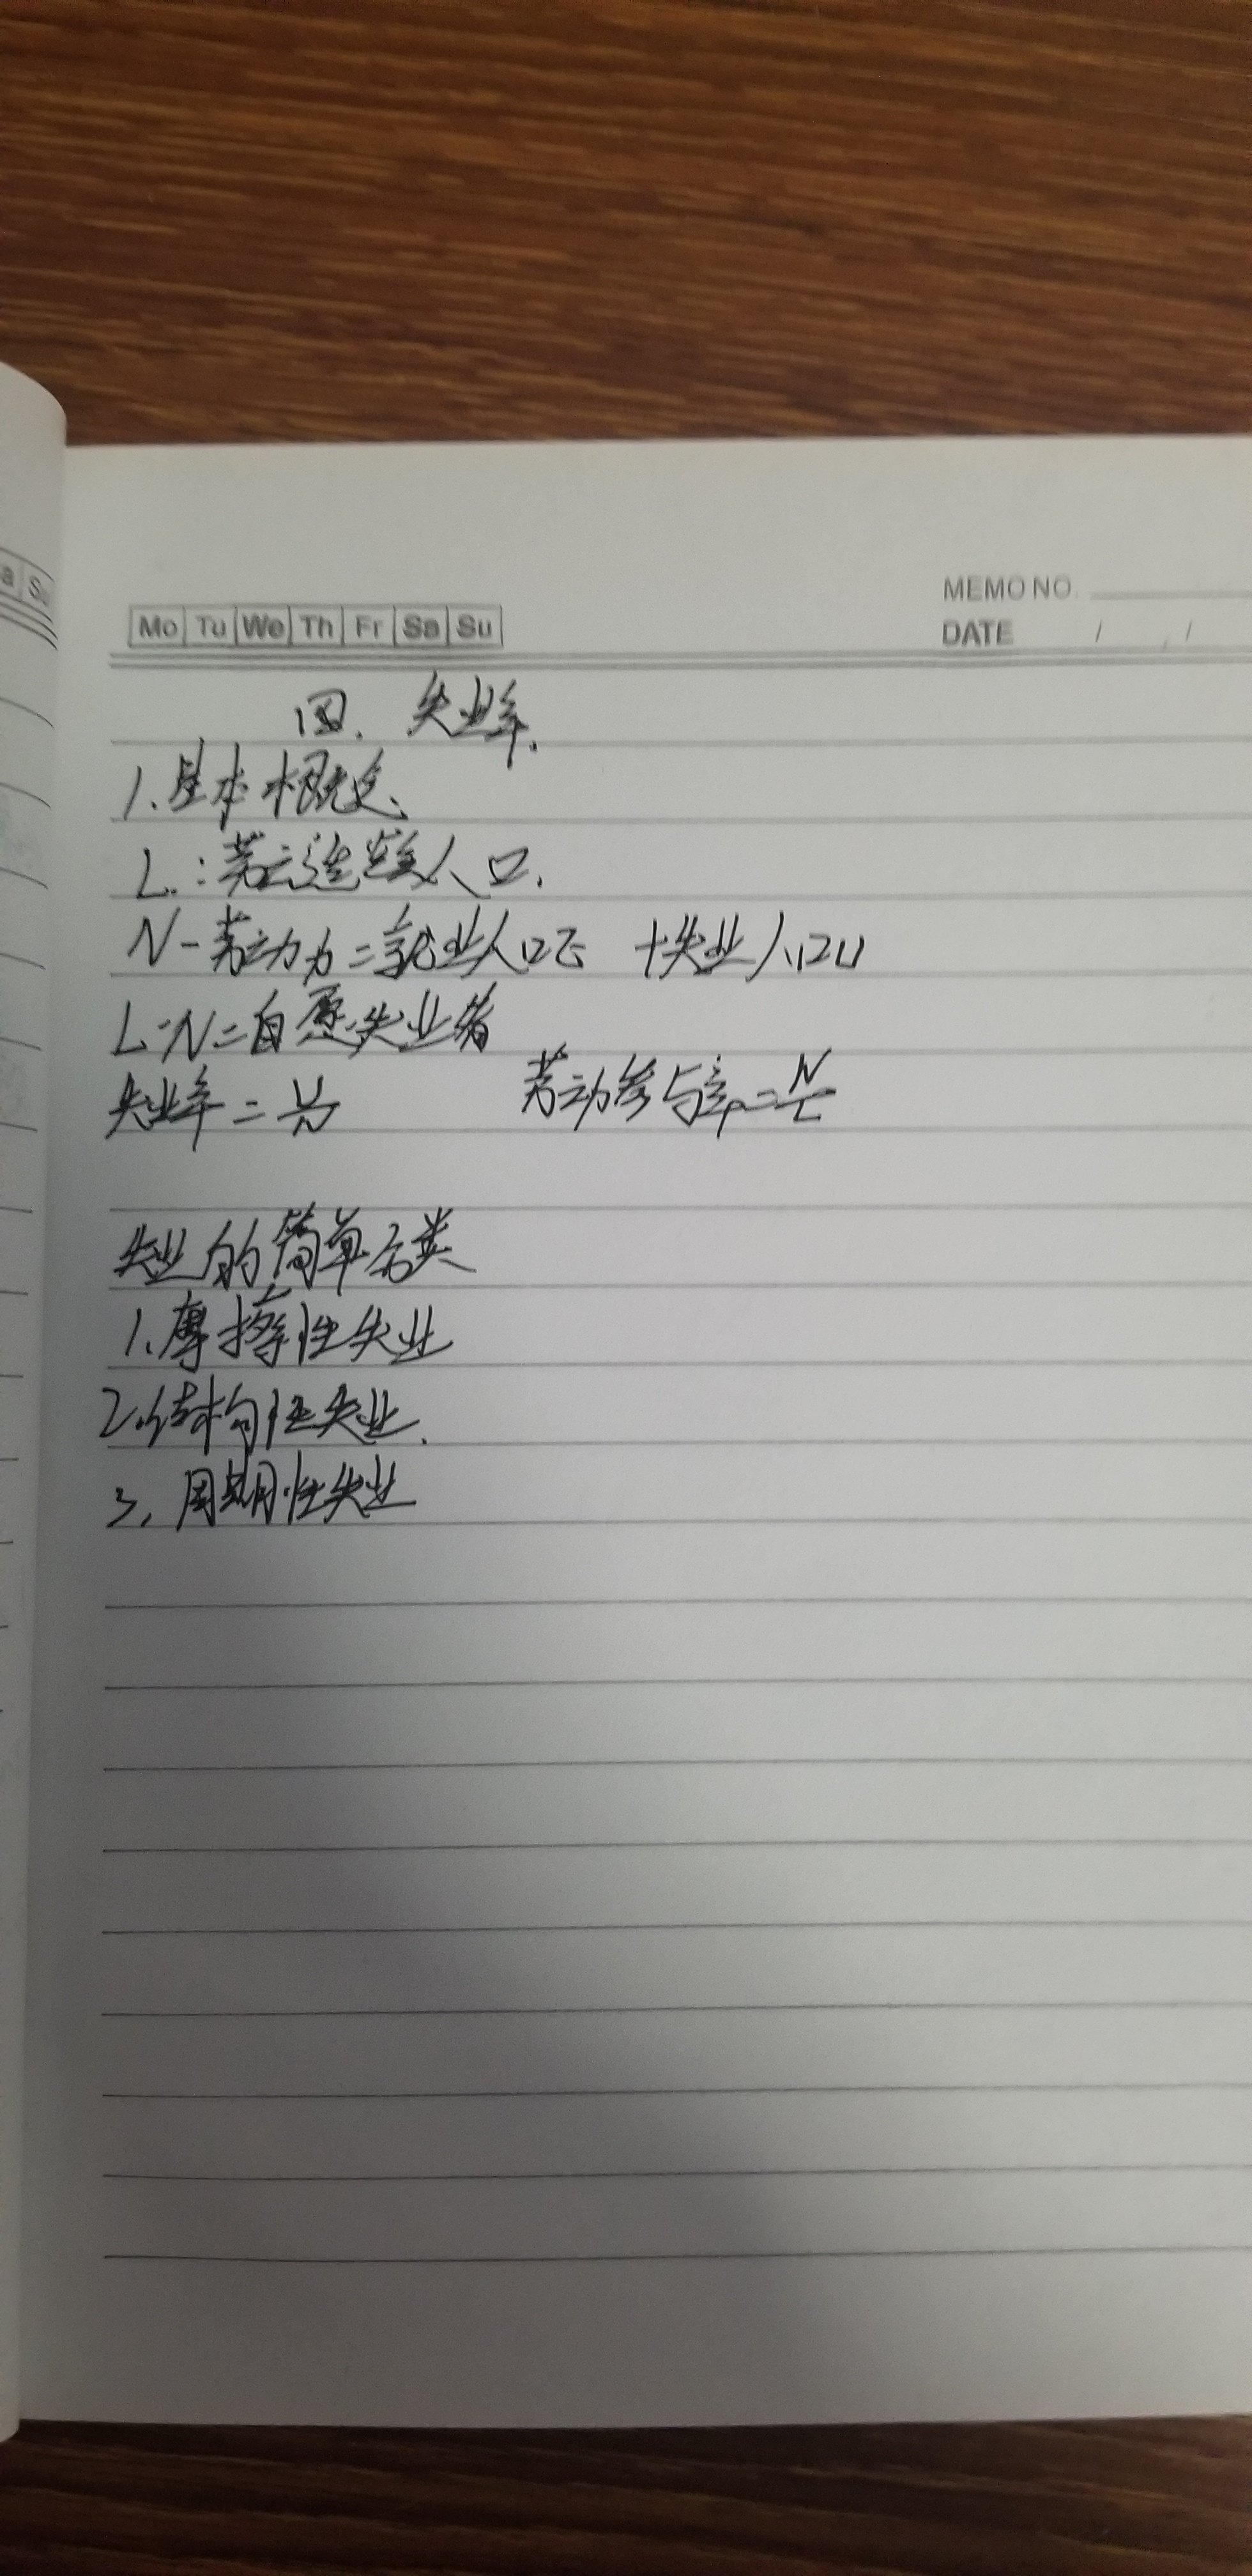 a Su
MEMO NO.
Mo Tu We Th Fr Sa Su
DATE / /
四、失业率.
1.基本概念、
L:劳动适龄人口.
N-劳动力=就业人口E +失业人口U
L-N=自愿失业者
失业率=U/N 劳动参与率=N/L
失业的简单分类
1.摩擦性失业
2.结构性失业.
3.周期性失业